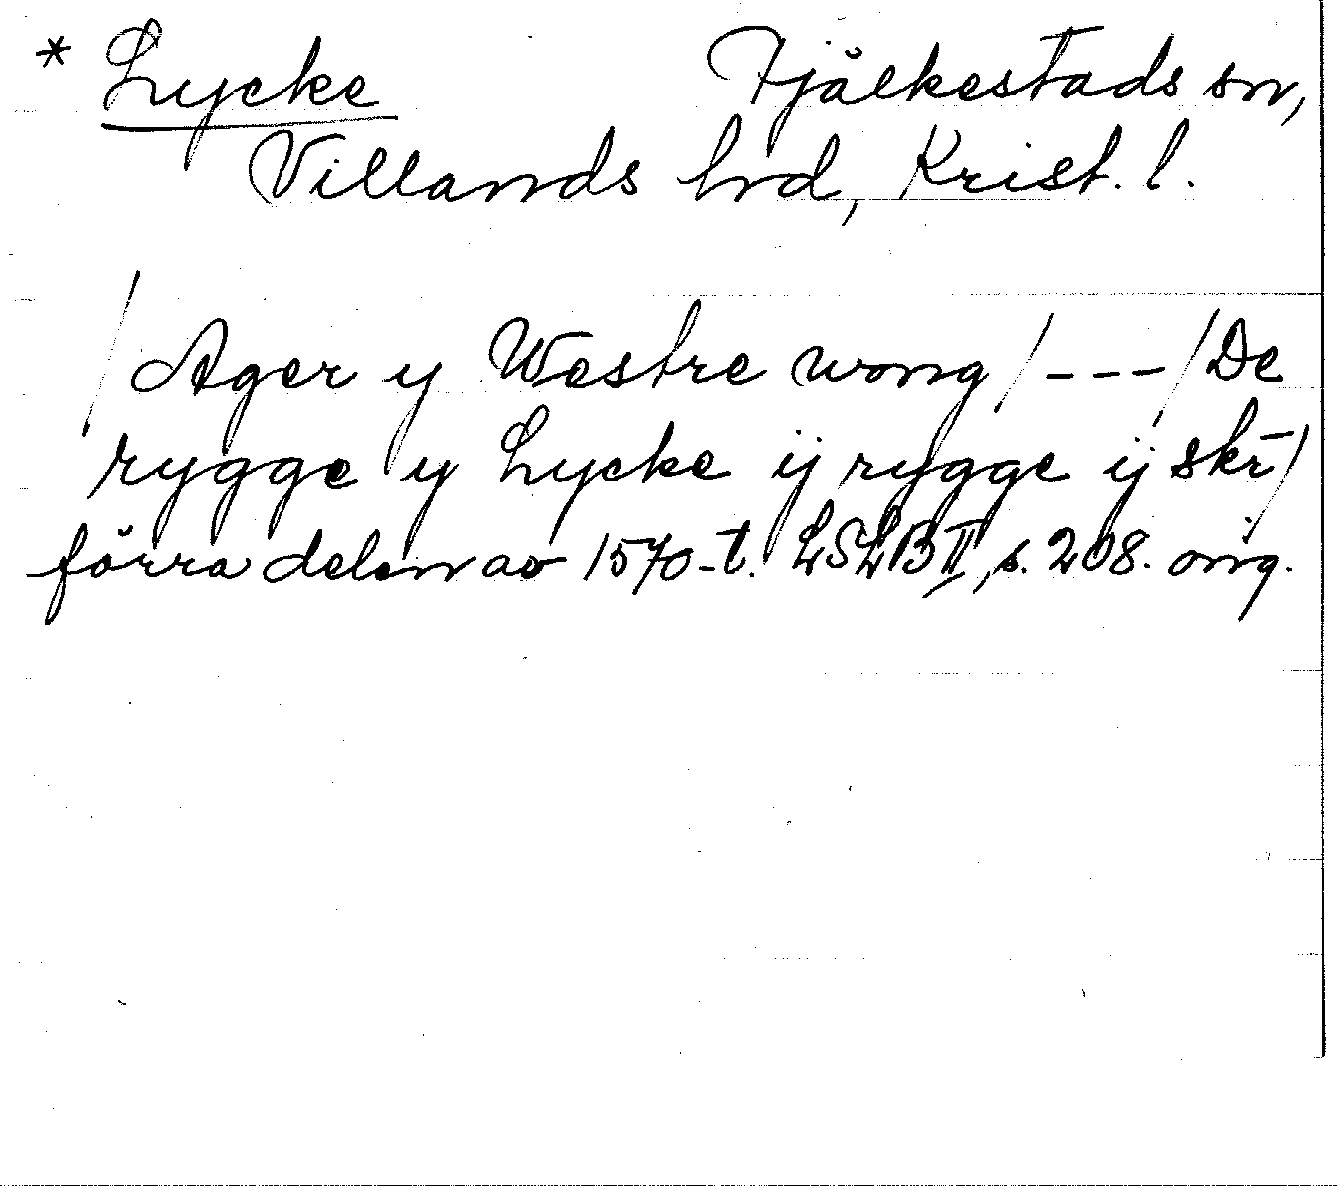 * Lycke Fjälkestads sn,
Villands hrd, Krist. l.
/Ager y Westre wong/ - - - /De
rygge y Lycke ij rygge ij skr̄/
förra delen av 1570-t. LSLB II, s. 208. orig.